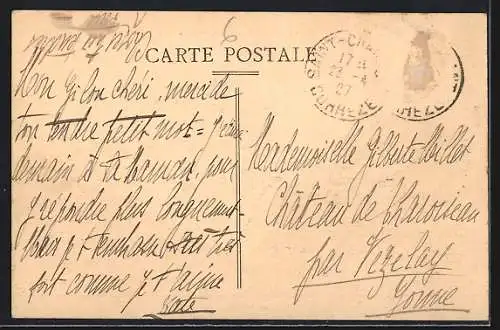 CARTE POSTALE
SAINT-CHA
17
22-4
27
CORREZE
REZE
Mon Gilon chéri, merci de
ton tendre petit mot =
demain à ta Maman, pour
y répondre plus longuement
Mais je t'embrasse très
fort comme je t'aime
Mademoiselle Gilberte Millet
Château de Charoiseau
par Vézelay
Yonne